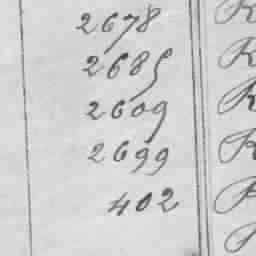 2678 R
2685 R
2609 R
2699 R
402 R